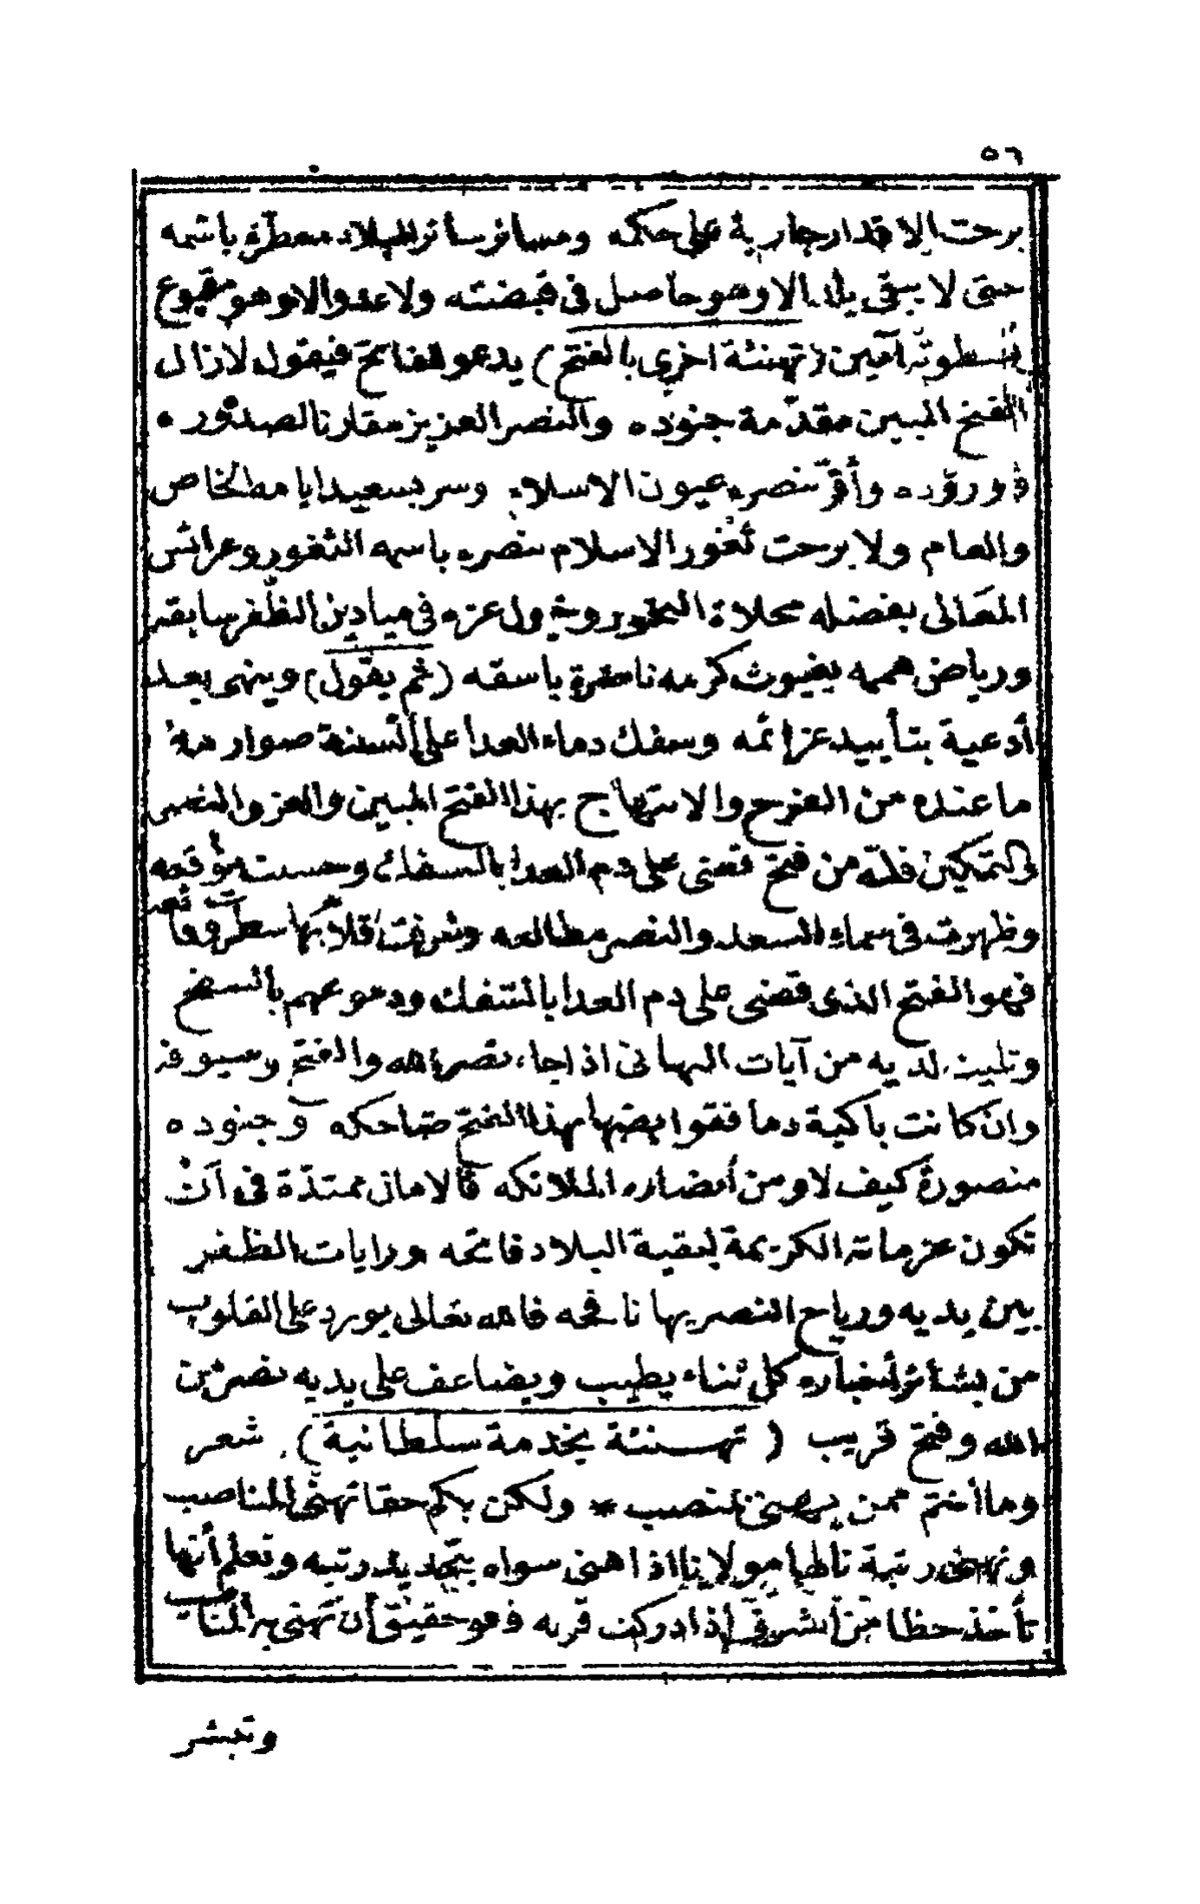 ٥٦
برحت الاقدار جارية على حكمه وسائر البلاد معطرة باسمه
حتى لا يبقى بلد الا وهو حاصل فى قبضته ولا عدو الا وهو مقموع
بسطوته آمين (تهنئة اخرى بالفتح) يدعو للفاتح فيقول لا زال
الفتح المبين مقدمة جنوده والنصر العزيز مقارنا لصدوره
وروده وأقر بنصره عيون الاسلام وسر بسعيد ايامه الخاص
والعام ولا برحت ثغور الاسلام بنصره باسمه الثغور وعرائس
المعالى بفضله محلاة النحور وخيول عزه فى ميادين الظفر سابقه
ورياض هممه بغيوث كرمه ناضرة باسقه (ثم يقول) وينهى بعد
أدعية بتأييد عزائمه وسفك دماء العدا على ألسنة صوارمه
ما عنده من الفرح والابتهاج بهذا الفتح المبين والعز والنصر
والتمكين فلله من فتح قضى على دم العدا بالسفك وحسنت موقعه
وظهرت فى سماء السعد والنصر مطالعه وشرفت أقلام بها سطرت
فهو الفتح الذى قضى على دم العدا بالسفك ودموعهم بالسفح
وتليت لديه من آيات التهانى اذا جاء نصر الله والفتح وسيوفه
وان كانت باكية دما فقوا بهذا الفتح ضاحكه وجنوده
منصورة كيف لا ومن أنصاره الملائكه فالامان ممتدة فى أن
تكون عزماته الكريمة لبقية البلاد فاتحه ورايات الظفر
بين يديه ورياح النصر بها نافحه فالله تعالى يورد على القلوب
من بشائر أخباره كل ثناء يطيب ويضاعف على يديه نصر من
الله وفتح قريب (تهنئة بخدمة سلطانية) شعر
وما أنتم ممن يهنى بمنصب * ولكن بكم حقا تهنى المناصب
وتهنى رتبة نالها مولانا اذا هنى سواه بتجديد رتبه وتعلم أنها
تأخذ حظا من الشرف اذا ادركت قربه فهو حقيق أن تهنى به المناصب
وتبشر